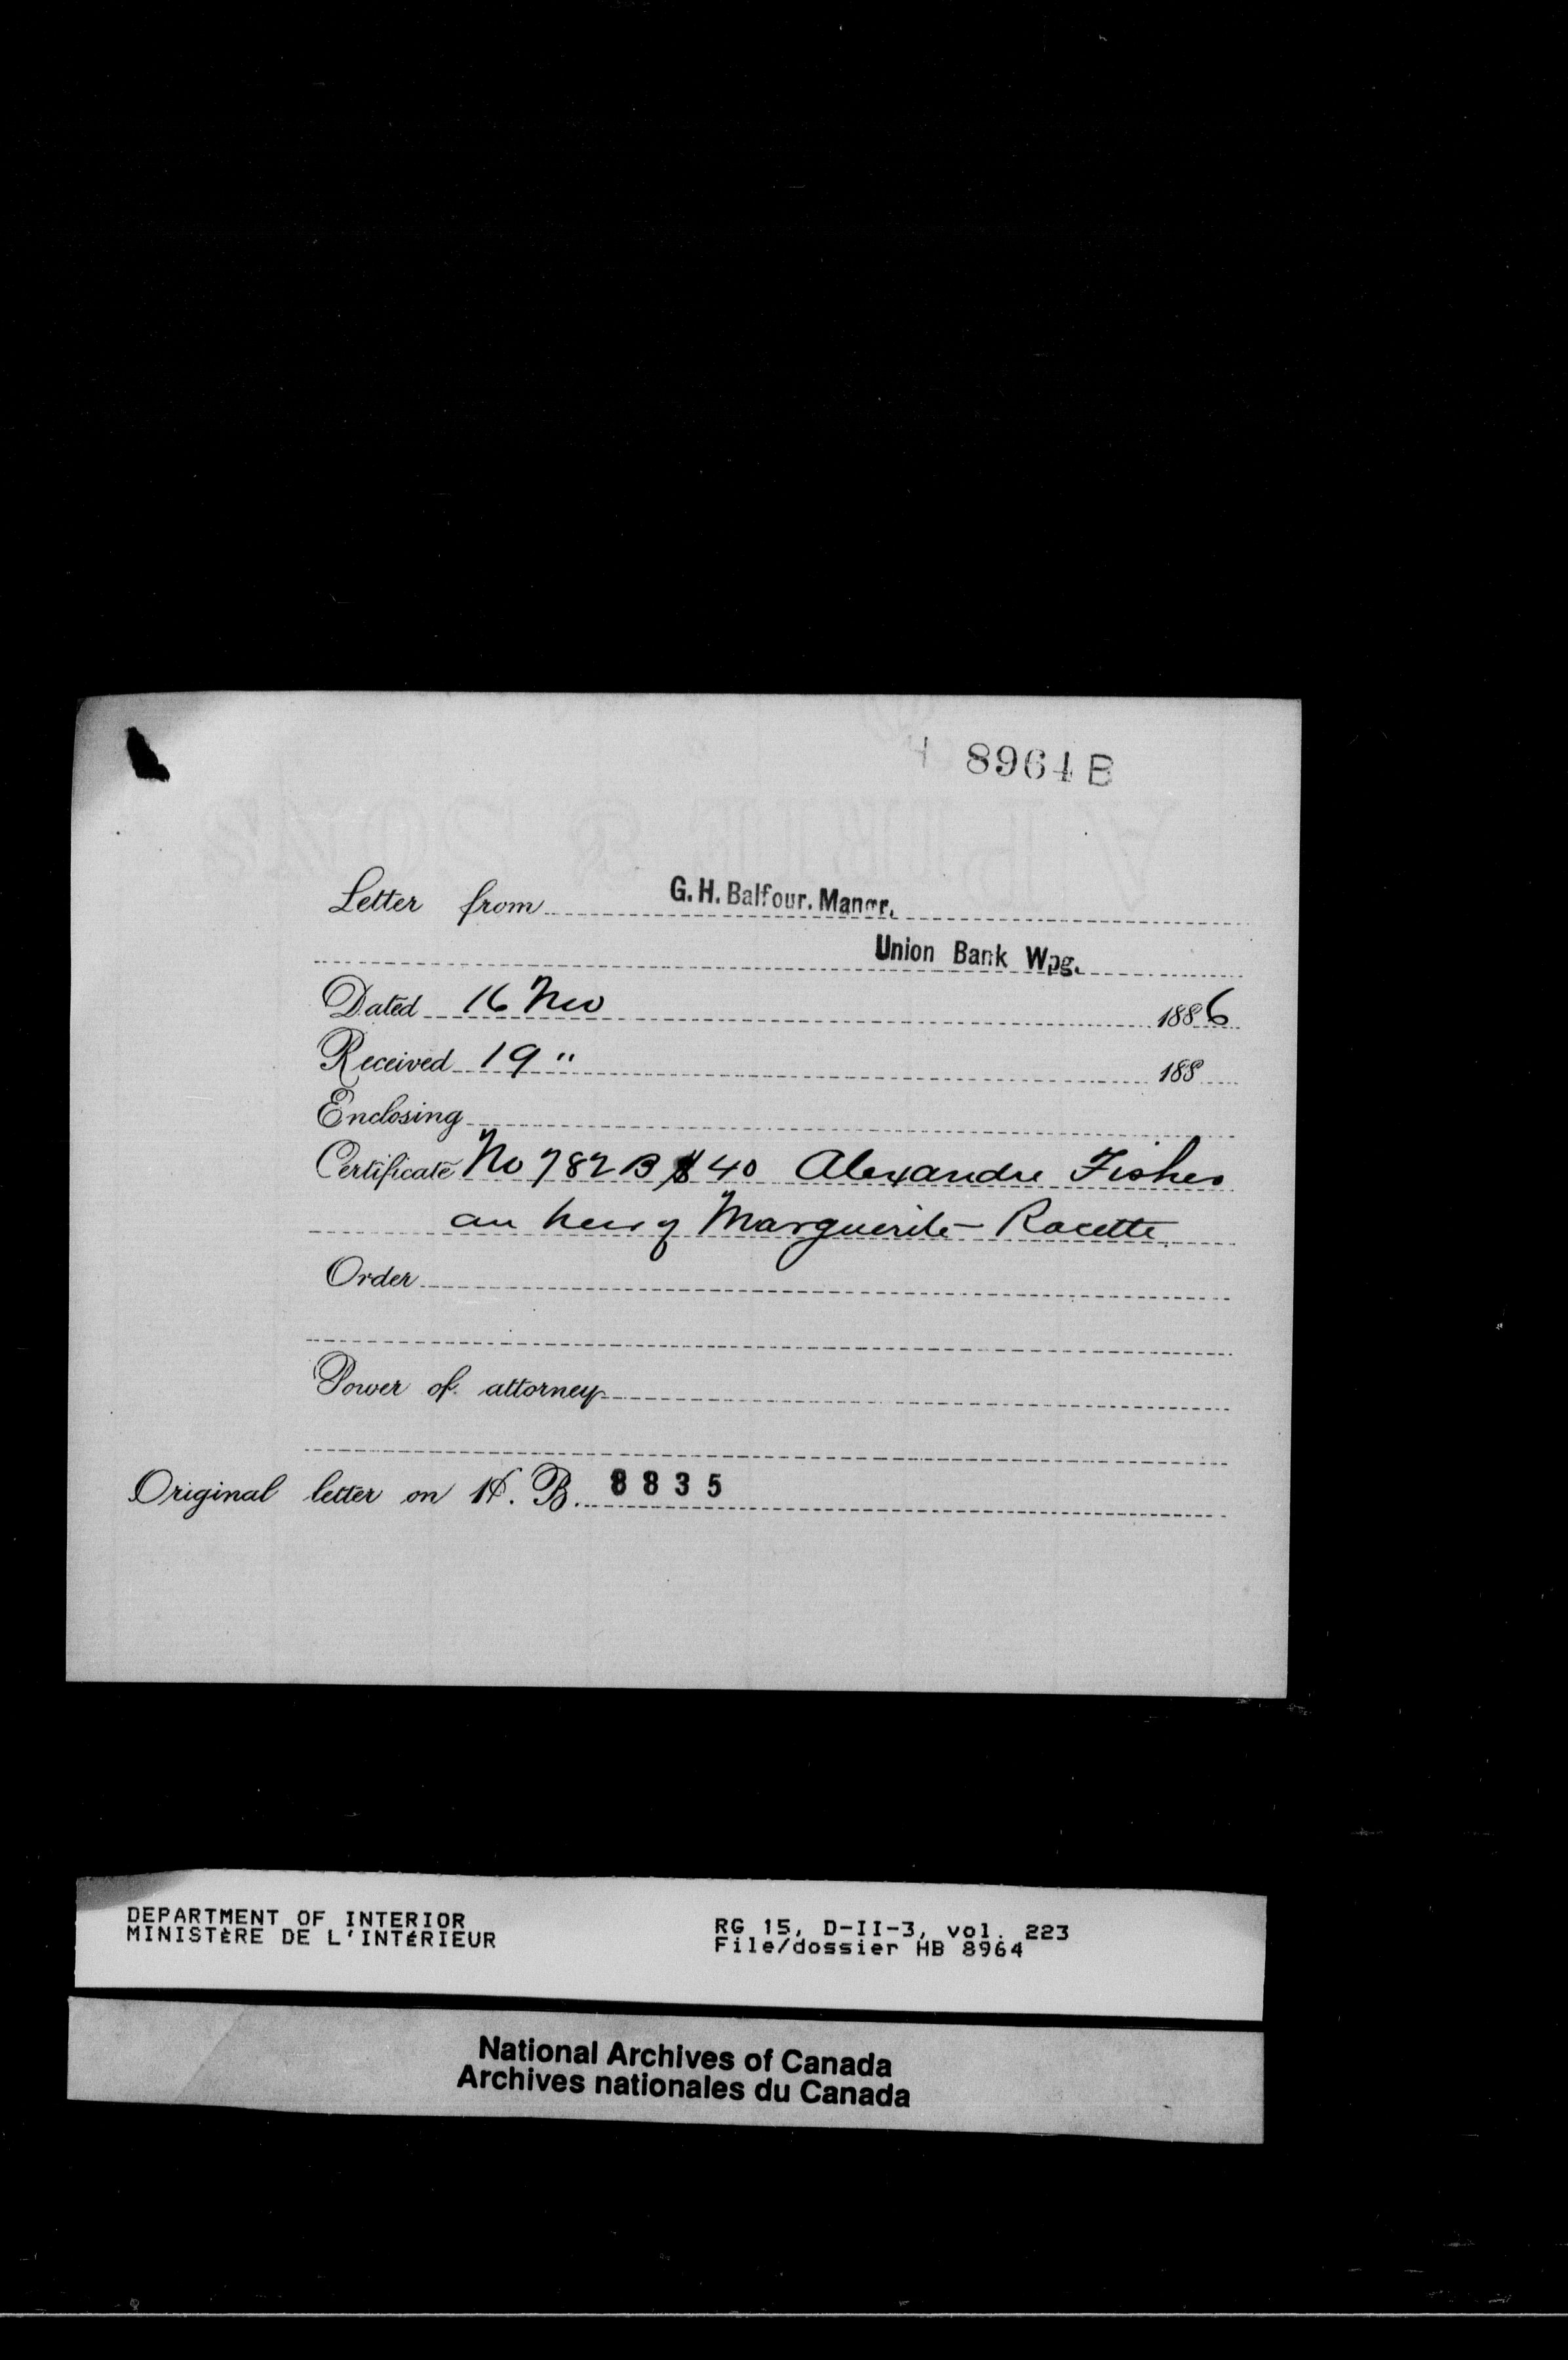 H 8964 B
Letter from G. H. Balfour. Mangr.
Union Bank Wpg.
Dated 16 Nov 1886
Received 19 " 188
Enclosing
Certificate No 782 B $40 Alexandre Fisher
an heir of Marguerite Racette
Order
Power of attorney
Original letter on H. B. 8835
DEPARTMENT OF INTERIOR
MINISTÈRE DE L'INTÉRIEUR
RG 15, D-II-3, vol. 223
File/dossier HB 8964
National Archives of Canada
Archives nationales du Canada